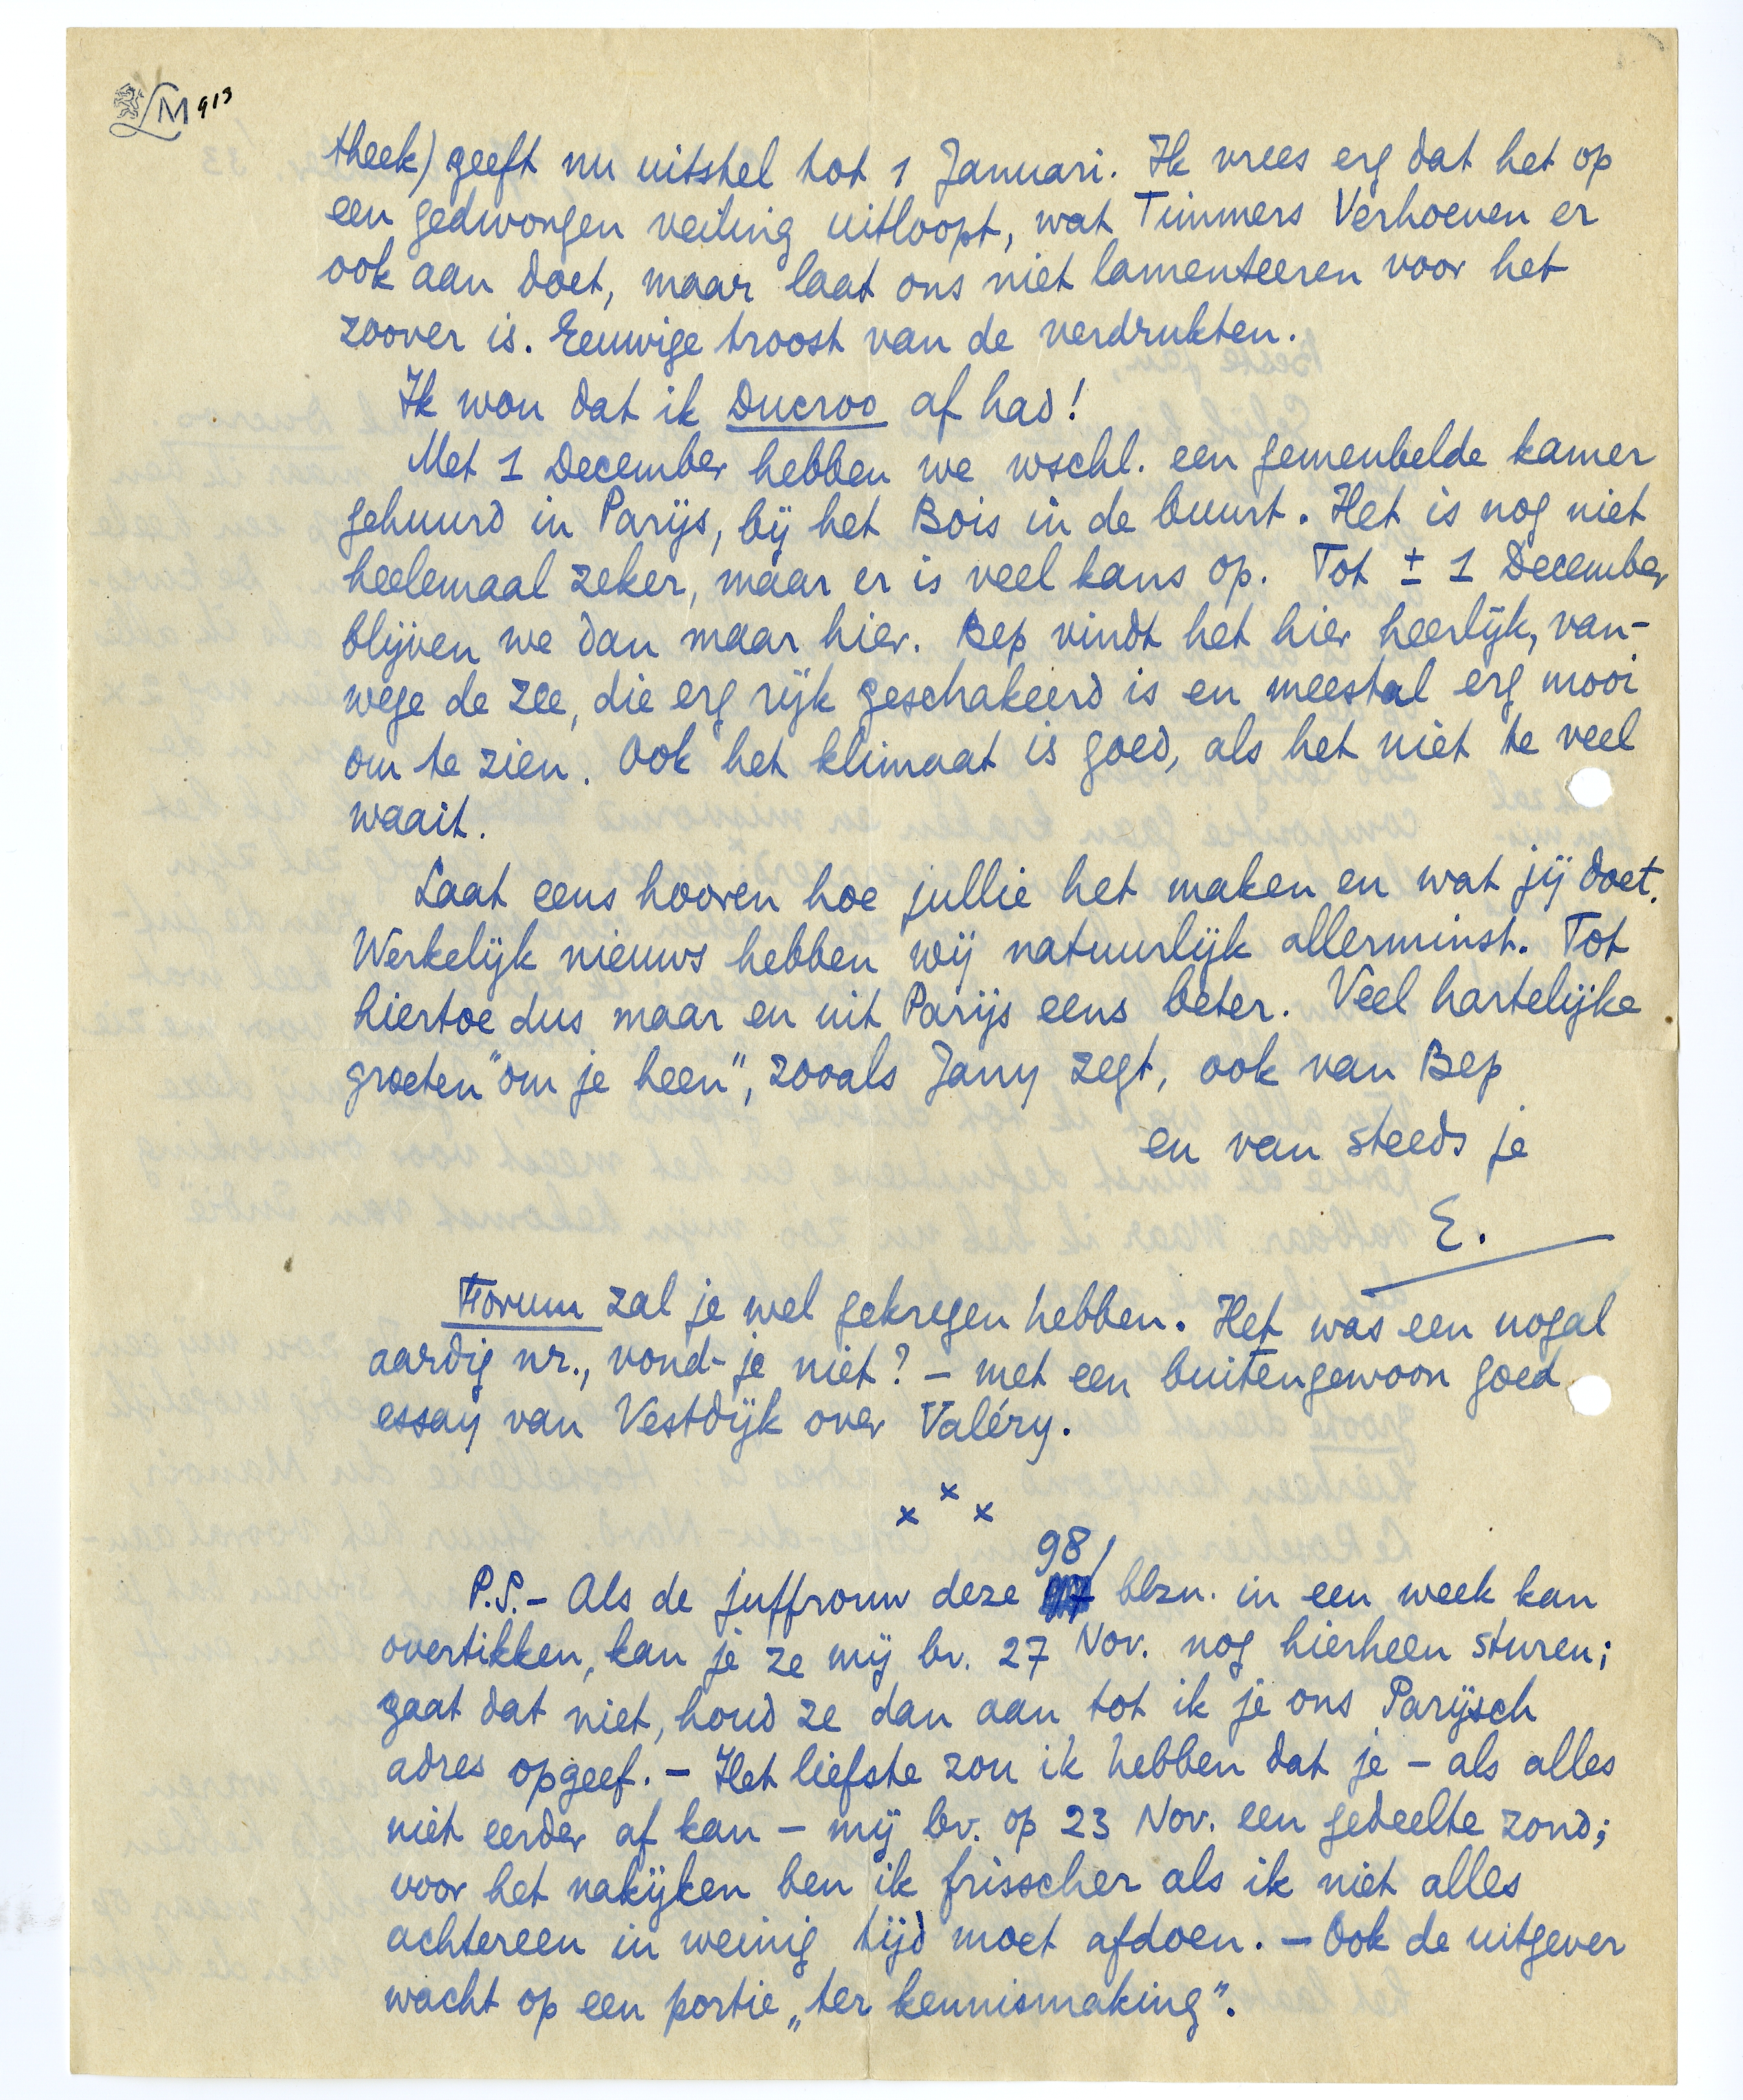 LM 913
theek) geeft nu uitstel tot 1 Januari. Ik vrees erg dat het op
een gedwongen veiling uitloopt, wat Timmers Verhoeven er
ook aan doet, maar laat ons niet lamenteeren voor het
zoover is. Eeuwige troost van de verdrukten.
Ik wou dat ik Ducroo af had!
Met 1 December hebben we wschl. een gemeubelde kamer
gehuurd in Parijs, bij het Bois in de buurt. Het is nog niet
heelemaal zeker, maar er is veel kans op. Tot ± 1 December
blijven we dan maar hier. Bep vindt het hier heerlijk, van-
wege de zee, die erg rijk geschakeerd is en meestal erg mooi
om te zien. Ook het klimaat is goed, als het niet te veel
waait.
Laat eens hooren hoe jullie het maken en wat jij doet.
Werkelijk nieuws hebben wij natuurlijk allerminst. Tot
hiertoe dus maar en uit Parijs eens beter. Veel hartelijke
groeten "om je heen", zooals Jany zegt, ook van Bep
en van steeds je
E.
Forum zal je wel gekregen hebben. Het was een nogal
aardig nr., vond-je niet? – met een buitengewoon goed
essay van Vestdijk over Valéry.
x x x
98/
P.S. – Als de juffrouw deze blzn. in een week kan
overtikken, kan je ze mij bv. 27 Nov. nog hierheen sturen;
gaat dat niet, houd ze dan aan tot ik je ons Parijsch
adres opgeef. – Het liefste zou ik hebben dat je – als alles
niet eerder af kan – mij bv. op 23 Nov. een gedeelte zond;
voor het nakijken ben ik frisscher als ik niet alles
achtereen in weinig tijd moet afdoen. – Ook de uitgever
wacht op een portie „ter kennismaking”.